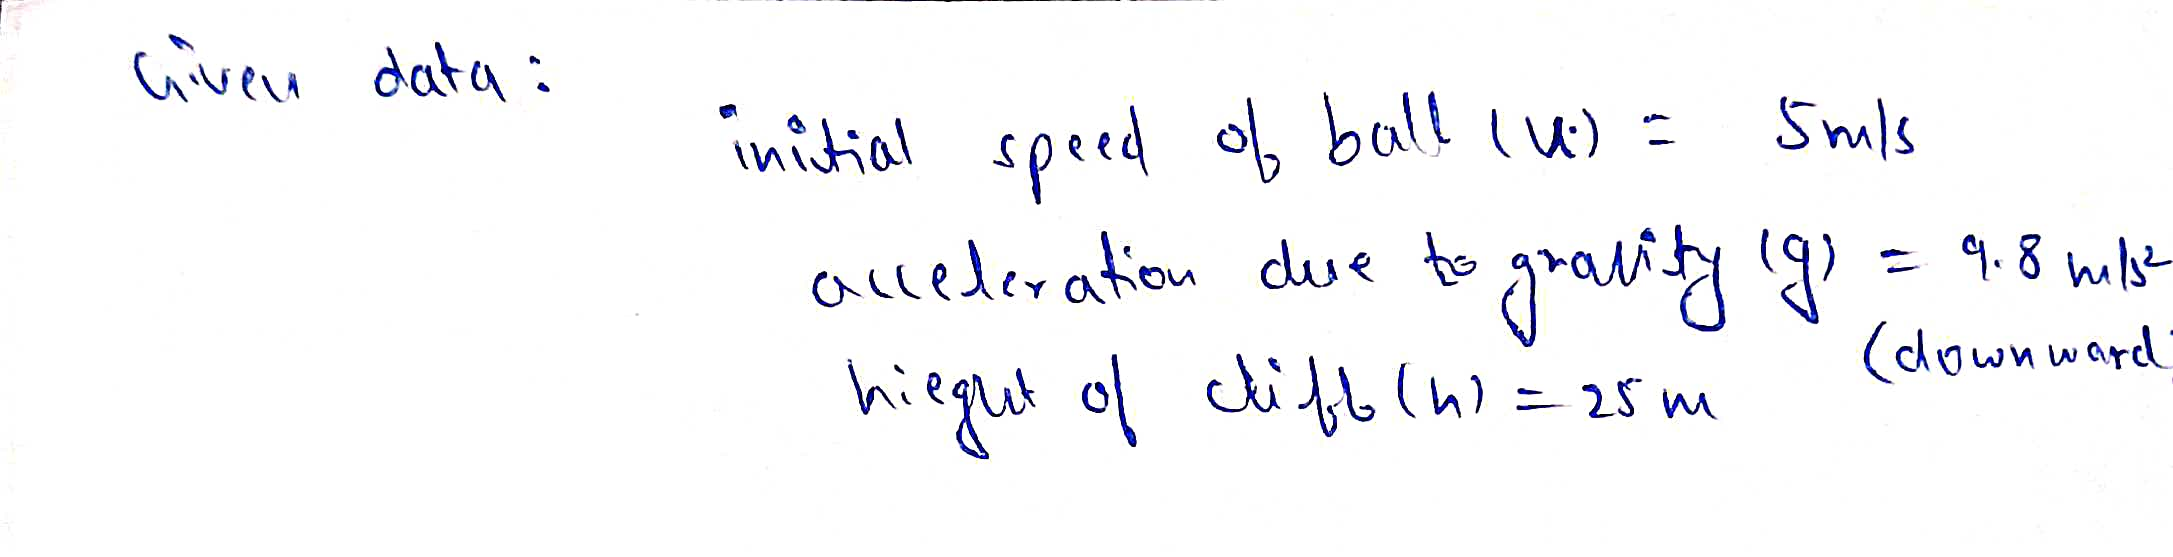 Given data:
initial speed of ball (u) = 5m/s
acceleration due to gravity (g) = 9.8 m/s²
(downward)
hieght of cliff (h) = 25 m